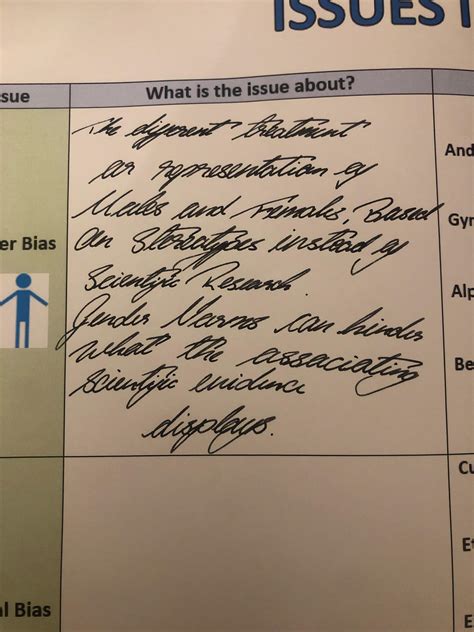 ISSUES I
sue
What is the issue about?
The different treatment
or representation of
Males and Females, Based
on Stereotypes instead of
Scientific Research.
Gender Norms can hinder
what the associating
scientific evidence
displays.
er Bias
And
Gyn
Alp
Be
Cu
Et
E
al Bias